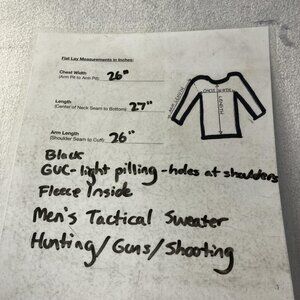 Flat Lay Measurements in Inches:
Chest Width
(Arm Pit to Arm Pit) 26"
Length
(Center of Neck Seam to Bottom) 27"
Arm Length
(Shoulder Seam to Cuff) 26"
CHEST WIDTH
LENGTH
Black
GUC - light pilling - holes at shoulders
Fleece Inside
Men's Tactical Sweater
Hunting/Guns/Shooting